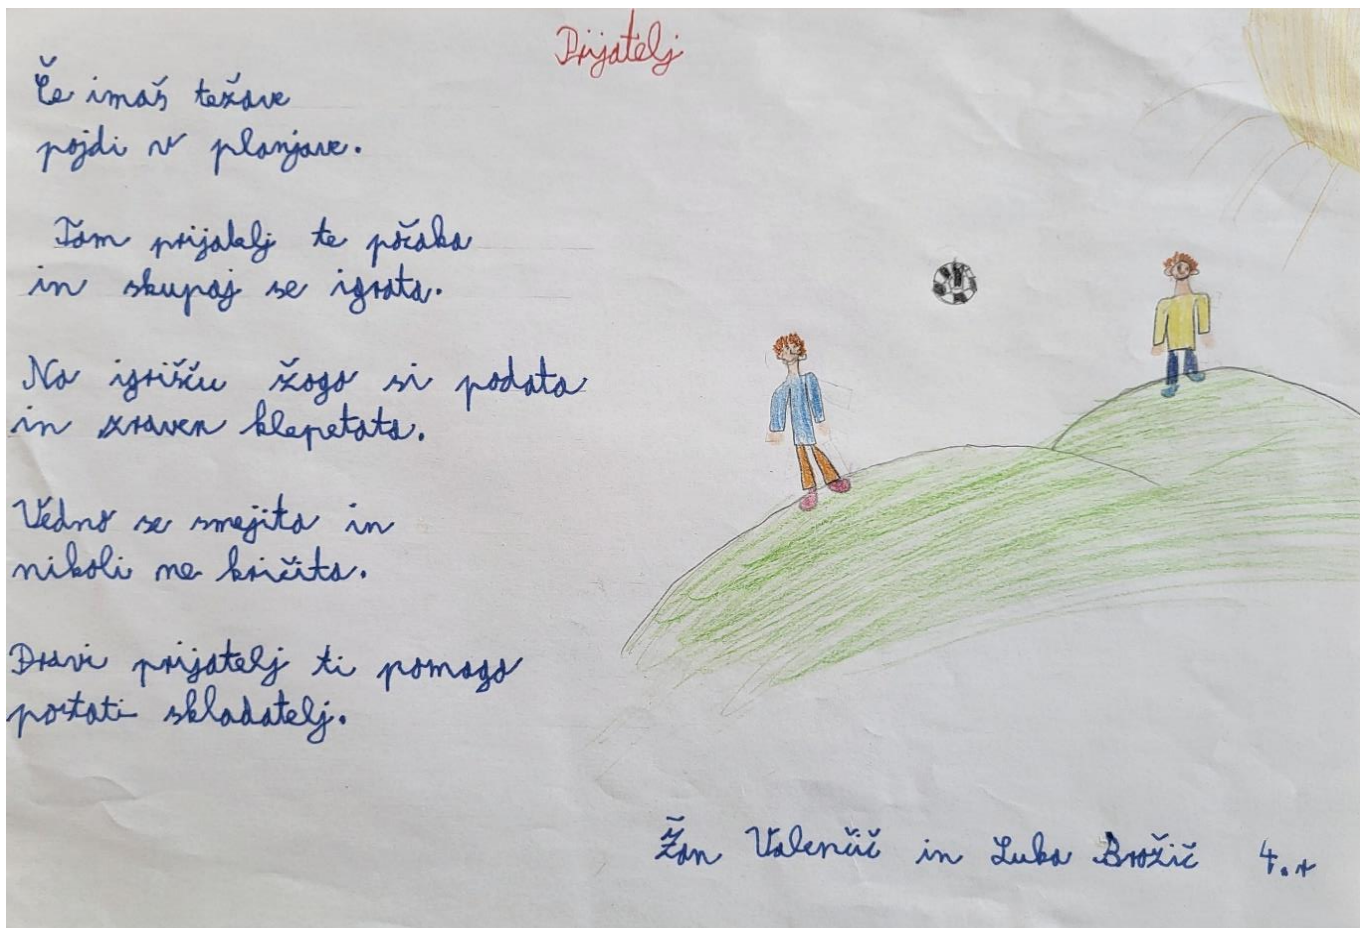 Prijatelj
Če imaš težave
pojdi v planjave.
Tam prijatelj te počaka
in skupaj se igrata.
Na igrišču žogo si podata
in zraven klepetata.
Vedno se smejita in
nikoli ne kričita.
Pravi prijatelj ti pomaga
postati skladatelj.
Žan Valenčič in Luka Brožič 4.r